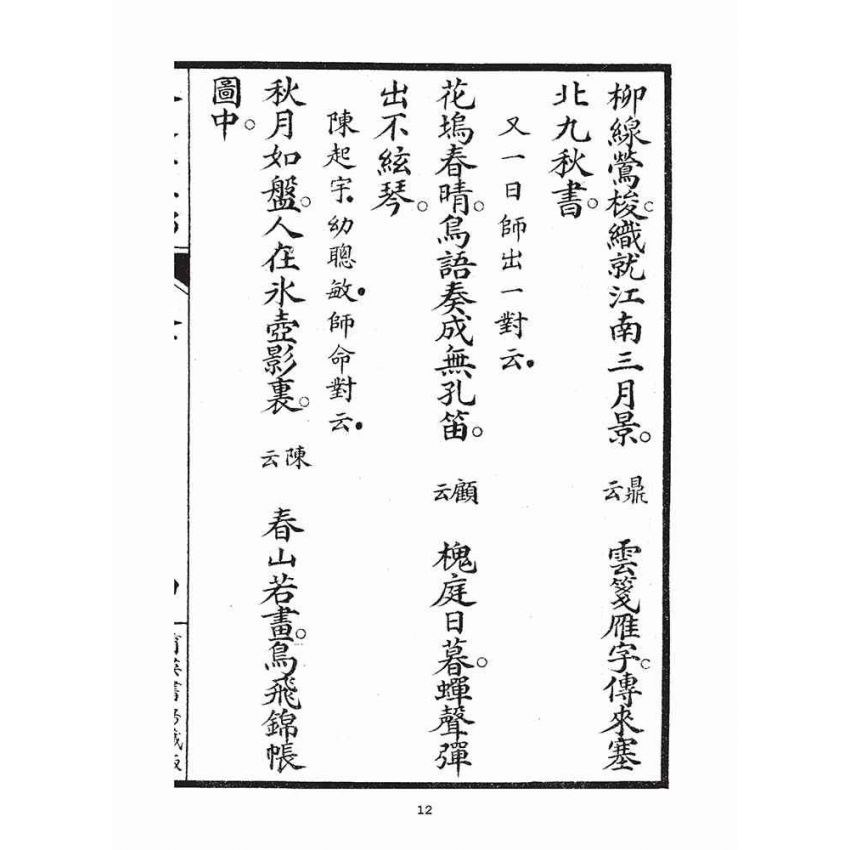 柳線鶯梭。織就江南三月景。鼎云 雲箋雁字。傳來塞
北九秋書。
又一日師出一對云。
花塢春晴。鳥語奏成無孔笛。顧云 槐庭日暮。蟬聲彈
出不絃琴。
陳起宇。幼聰敏。師命對云。
秋月如盤。人在氷壺影裏。陳云 春山若畫。鳥飛錦帳
圖中。
12